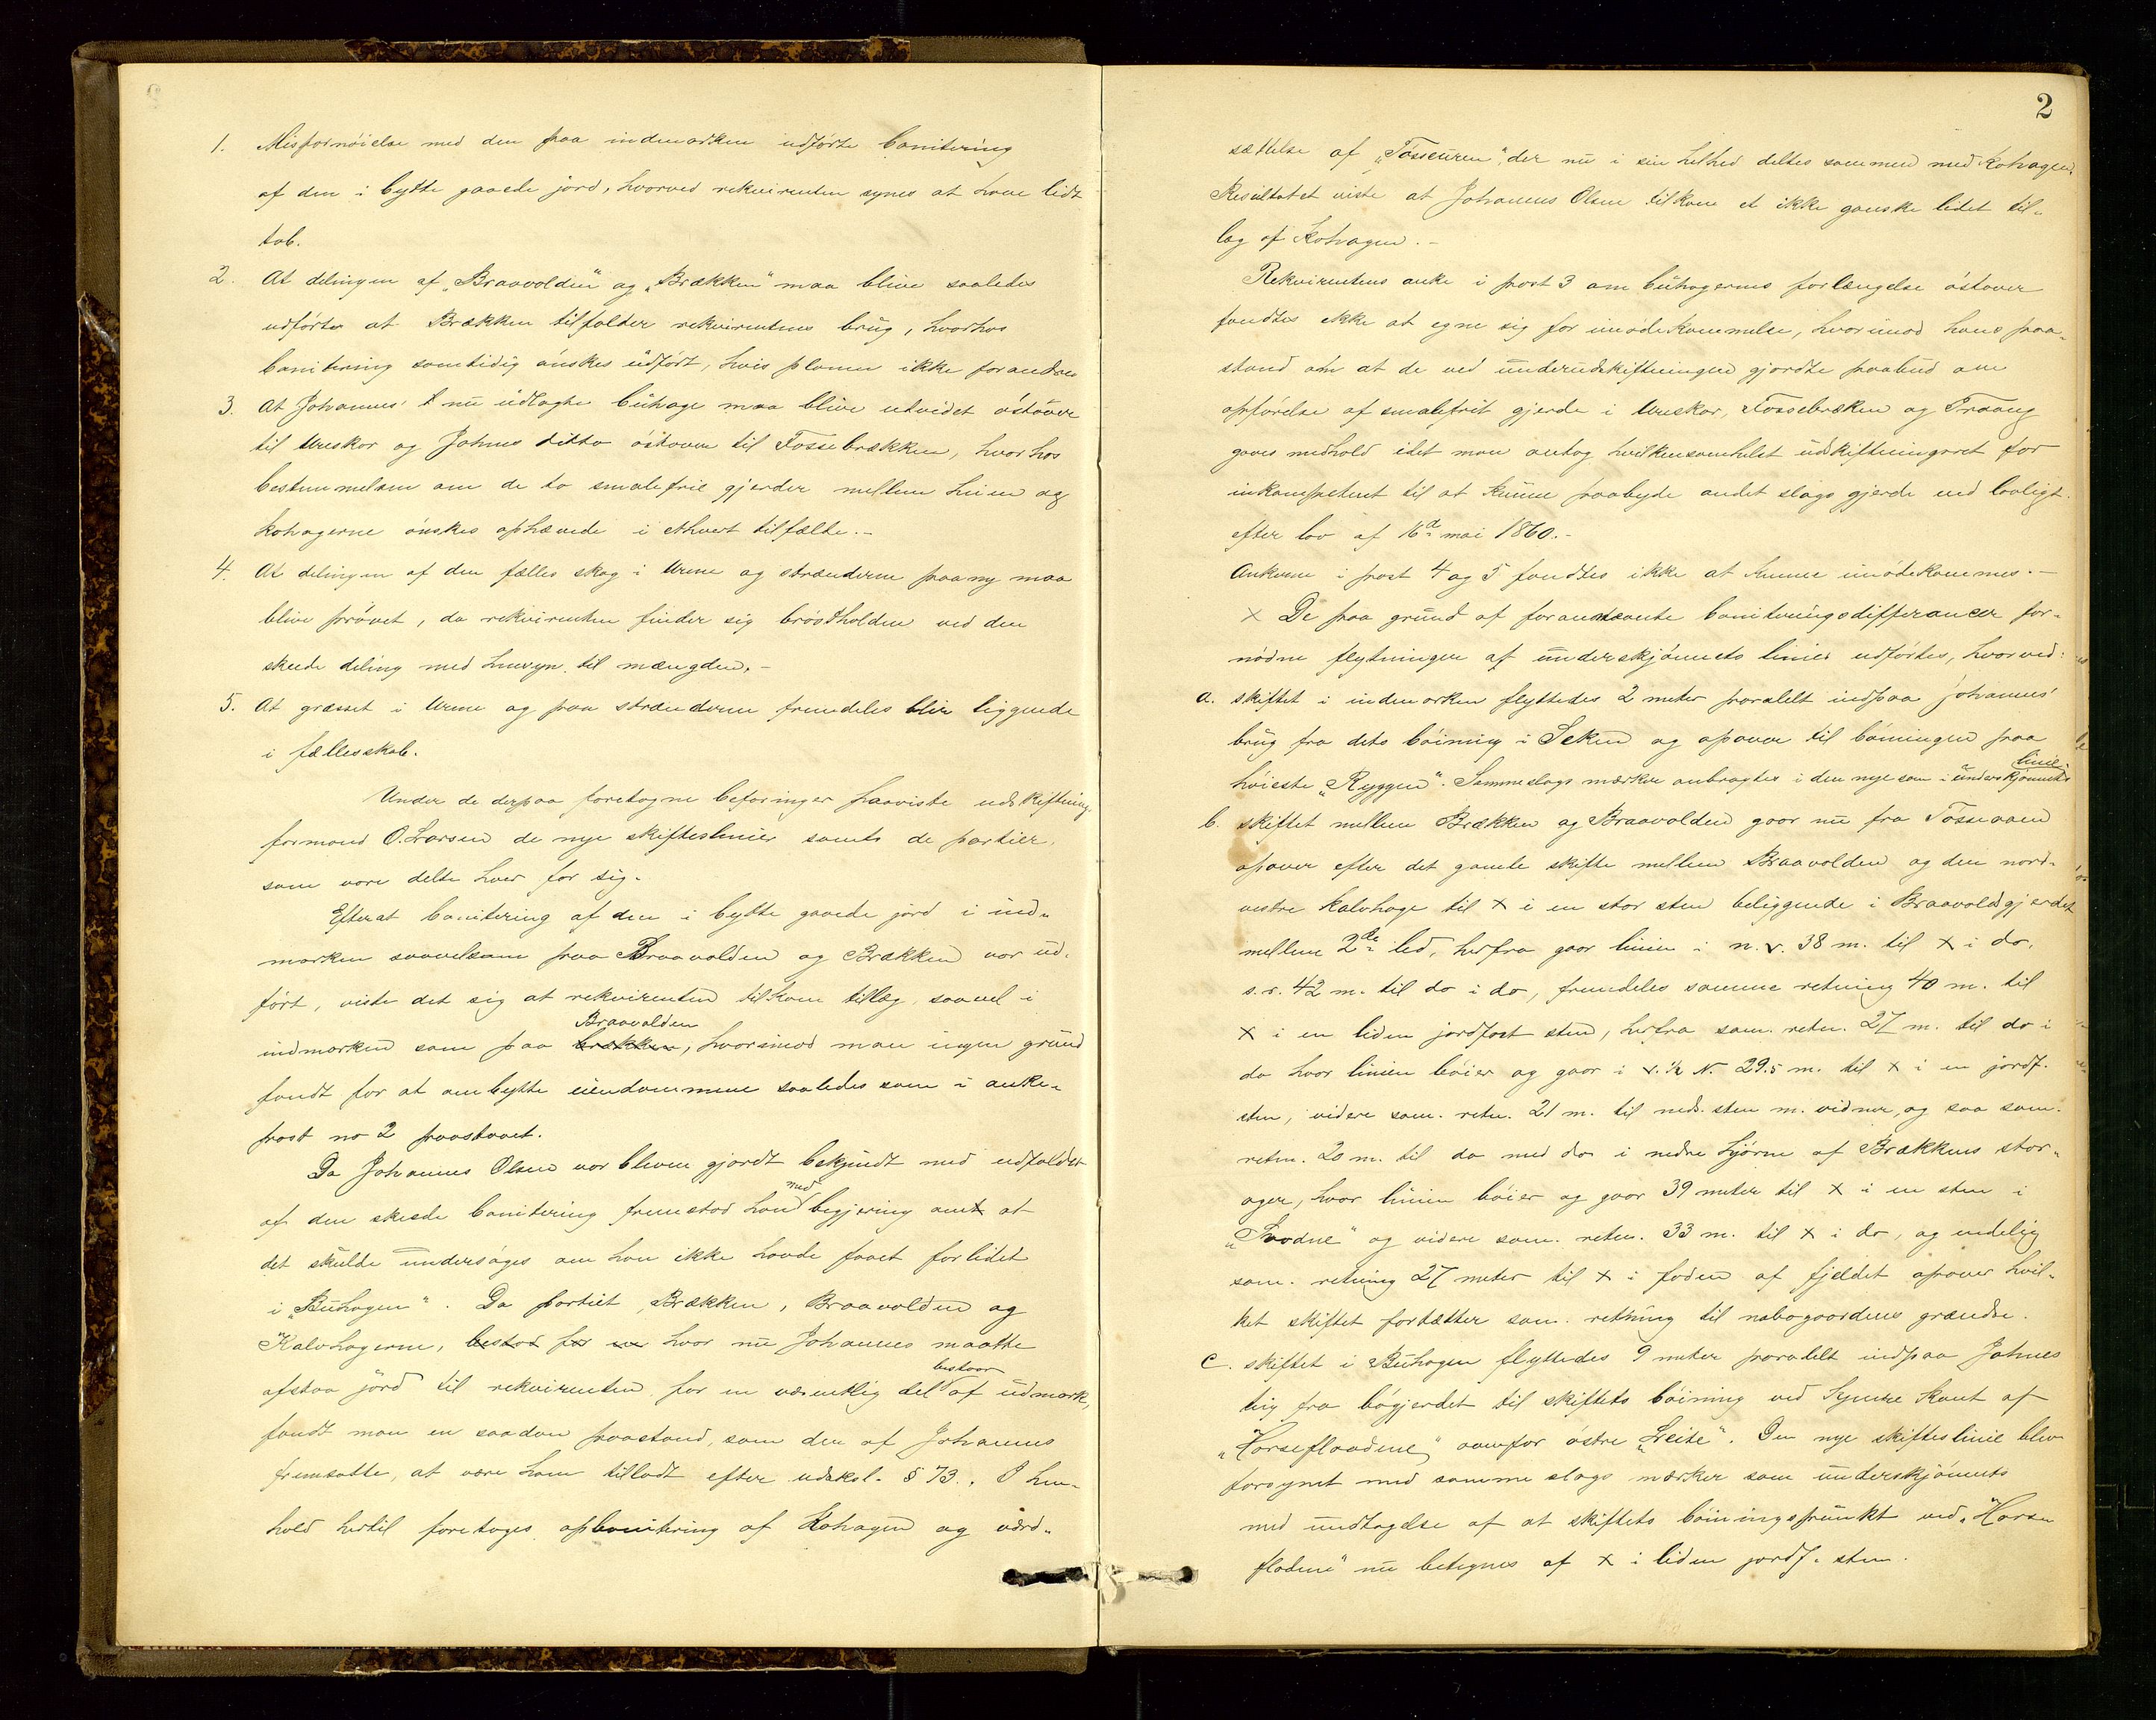 1. Misfornöielse med den paa indmarken udförte bonitering
af den i bytte gaaede jord, hvorved rekvirenten synes at have lidt
tab.
2. At delingen af „Braavolden" og „Brækken" maa blive saaledes
udförte at Brækken tilfalder rekvirentens brug, hvorhos
bonitering samtidig önskes udfört, hvis planen ikke forandres
3. At Johannes' nu udlagte buhage maa blive udvidet östover
til Ureskar og Johnes ditto östover til Fossebrækken, hvorhos
bestemmelsen om de to smalefrie gjerder mellem huen og
kohagerne önskes ophævede i ethvert tilfælde.-
4. At delingen af den fælles skog i Urene og strænderne paany maa
blive prövet, da rekvirenten finder sig bröstholden ved den
skede deling med hensyn til mængden.-
5. At græsset i Urene og paa strænderne fremdeles blir liggende
i fællesskab.
Under de derpaa foretagne befaringer paaviste udskiftnings
formand O. Larsen de nye skifteslinier samt de partier,
som vare delte hver for sig.
Efterat bonitering af den i bytte gaaede jord i ind-
marken saavelsom paa Braavolden og Brækken var ud-
fört, viste det sig at rekvirenten tilkom tillæg, saavel i
indmarken som paa brækken Braavolden, hvorimod man ingen grund
fandt for at ombytte eiendommene saaledes som i anke-
post no 2 paastaaet.
Da Johannes Olsen var bleven gjordt bekjendt med udfaldet
af den skeede bonitering fremstod han med begjering omt at
det skulde undersöges om han ikke havde faaet forlidet
i „Buhagen". Da partiet Brækken, Braavolden og
Kalvhagerne, bestod for en hvor nu Johannes maatte
afstaa jord til rekvirenten for en væsentlig del bestaar af udmark,
fandt man en saadan paastand, som den af Johannes
fremsatte, at være ham tilladt efter udskl. § 73. I hen-
hold hertil foretoges opbonitering af Kohagen og værd-
2
sættelse af „Fösseuren", der nu i sin helhed deltes sammen med Kohagen.
Resultatet viste at Johannes Olsen tilkom et ikke ganske lidet til-
læg af Kohagen.-
Rekvirentens anke i post 3 om buhagernes forlængelse östover
fandtes ikke at egne sig for imödekommelse, hvorimod hans paa-
stand om at de ved underudskiftningen gjordte paabud om
opförelse af smalefrit gjerde i Ureskar, Fossebrækken og Traang
gaves medhold idet man antog hvilkensomhelst udskiftningsret for
inkompetent til at kunne paabyde andet slags gjerde end lovligt.
efter lov af 16de mai 1860.-
Ankerne i post 4 og 5 fandtes ikke at kunne imödekommes.-
x De paa grund af forannævnte boniteringsdifferancer for-
nödne flytninger af underskjönnets linier udförtes, hvorved:
a. skiftet i indmarken flyttedes 2 meter paralelt indpaa Johannes'
brug fra dets böining i Seken og opover til böiningen paa
höieste „Ryggen". Sammeslags mærker anbragtes i den nye som i underskjönnets linie.
b. skiftet mellem Brækken og Braavolden gaar nu fra Fosseaaen
opover efter det gamle skifte mellem Braavolden og den nord-
vestre kalvhage til x i en stor sten beliggende i Braavoldsgjerdet
mellem 2de led, herfra gaar linien i n. v. 38 m. til x i do,
s. v. 42 m. til do i do, fremdeles samme retning 40 m. til
x i en liden jordfast sten, herfra sam. retn. 27 m. til do i
do hvor linien böier og gaar i v. ½ N. 29.5 m. til x i en jordf.
sten, videre sam. retn. 21 m. til neds. sten m. vidner, og saa sam.
retn. 20 m. til do med do i nedre hjörne af Brækkens stor-
ager, hvor linien böier og gaar 39 meter til x i en sten i
„Svodne" og videre sam. retn. 33 m. til x i do, og endelig
sam. retning 27 meter til x i foden af fjeldet opover hvil-
ket skiftet fortsætter sam. retning til nabogaardens grændse.
c. skiftet i Buhagen flyttedes 9 meter paralelt indpaa Johnes
teig fra bögjerdet til skiftets böining ved Synste kant af
„Horseflaadene" ovenfor östre „Leite". Den nye skifteslinie blev
forsynet med samme slags mærker som underskjönnets
med undtagelse af at skiftets böiningspunkt ved „Horse
flodene" nu betegnes af x i liden jordf. sten.